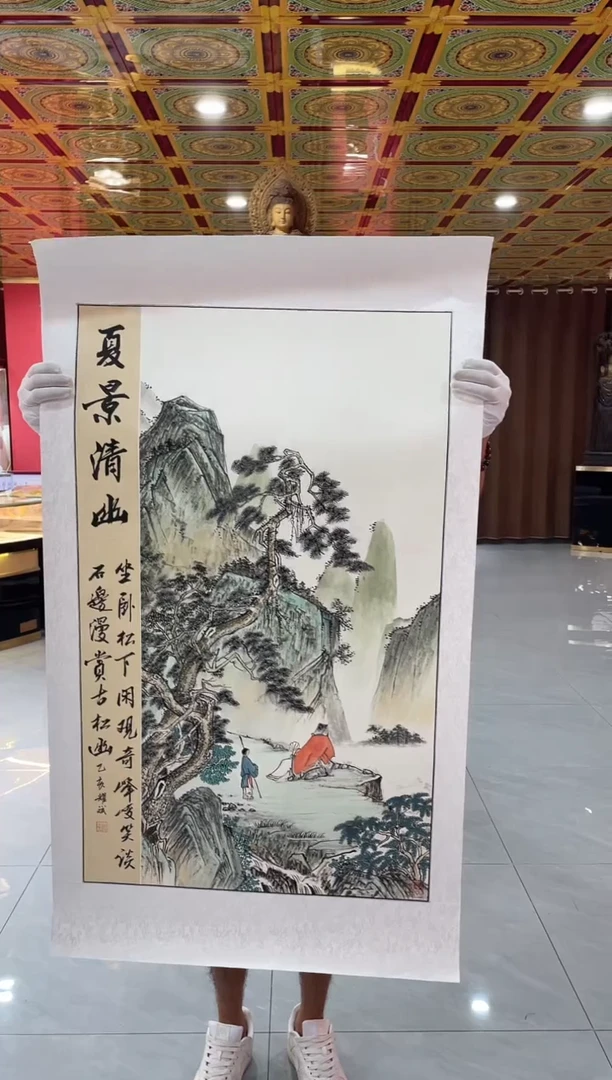 夏景清幽
坐卧松下闲观奇峰峻笑谈
石边漫赏古松幽